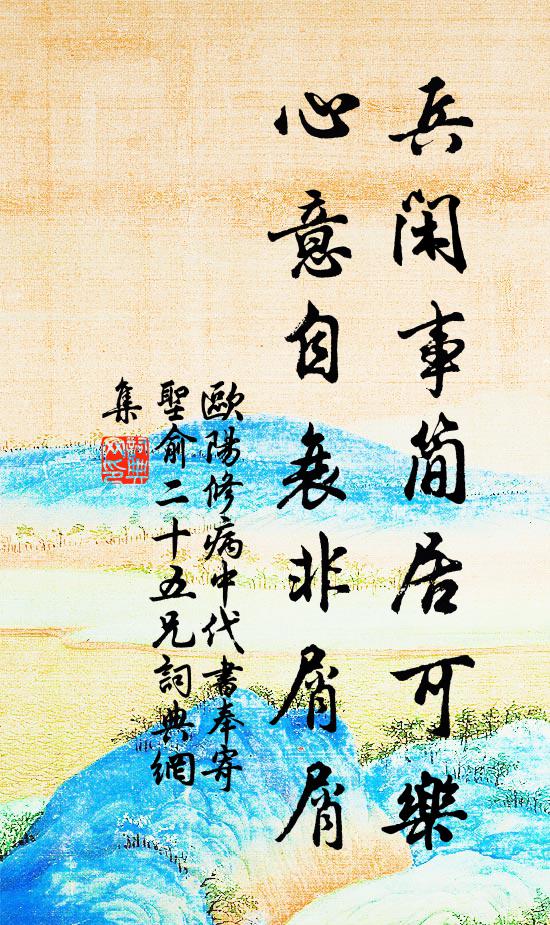 兵閑事簡居可樂
心意自衰非屑屑
歐陽修病中代書奉寄
聖俞二十五兄詞典網
集